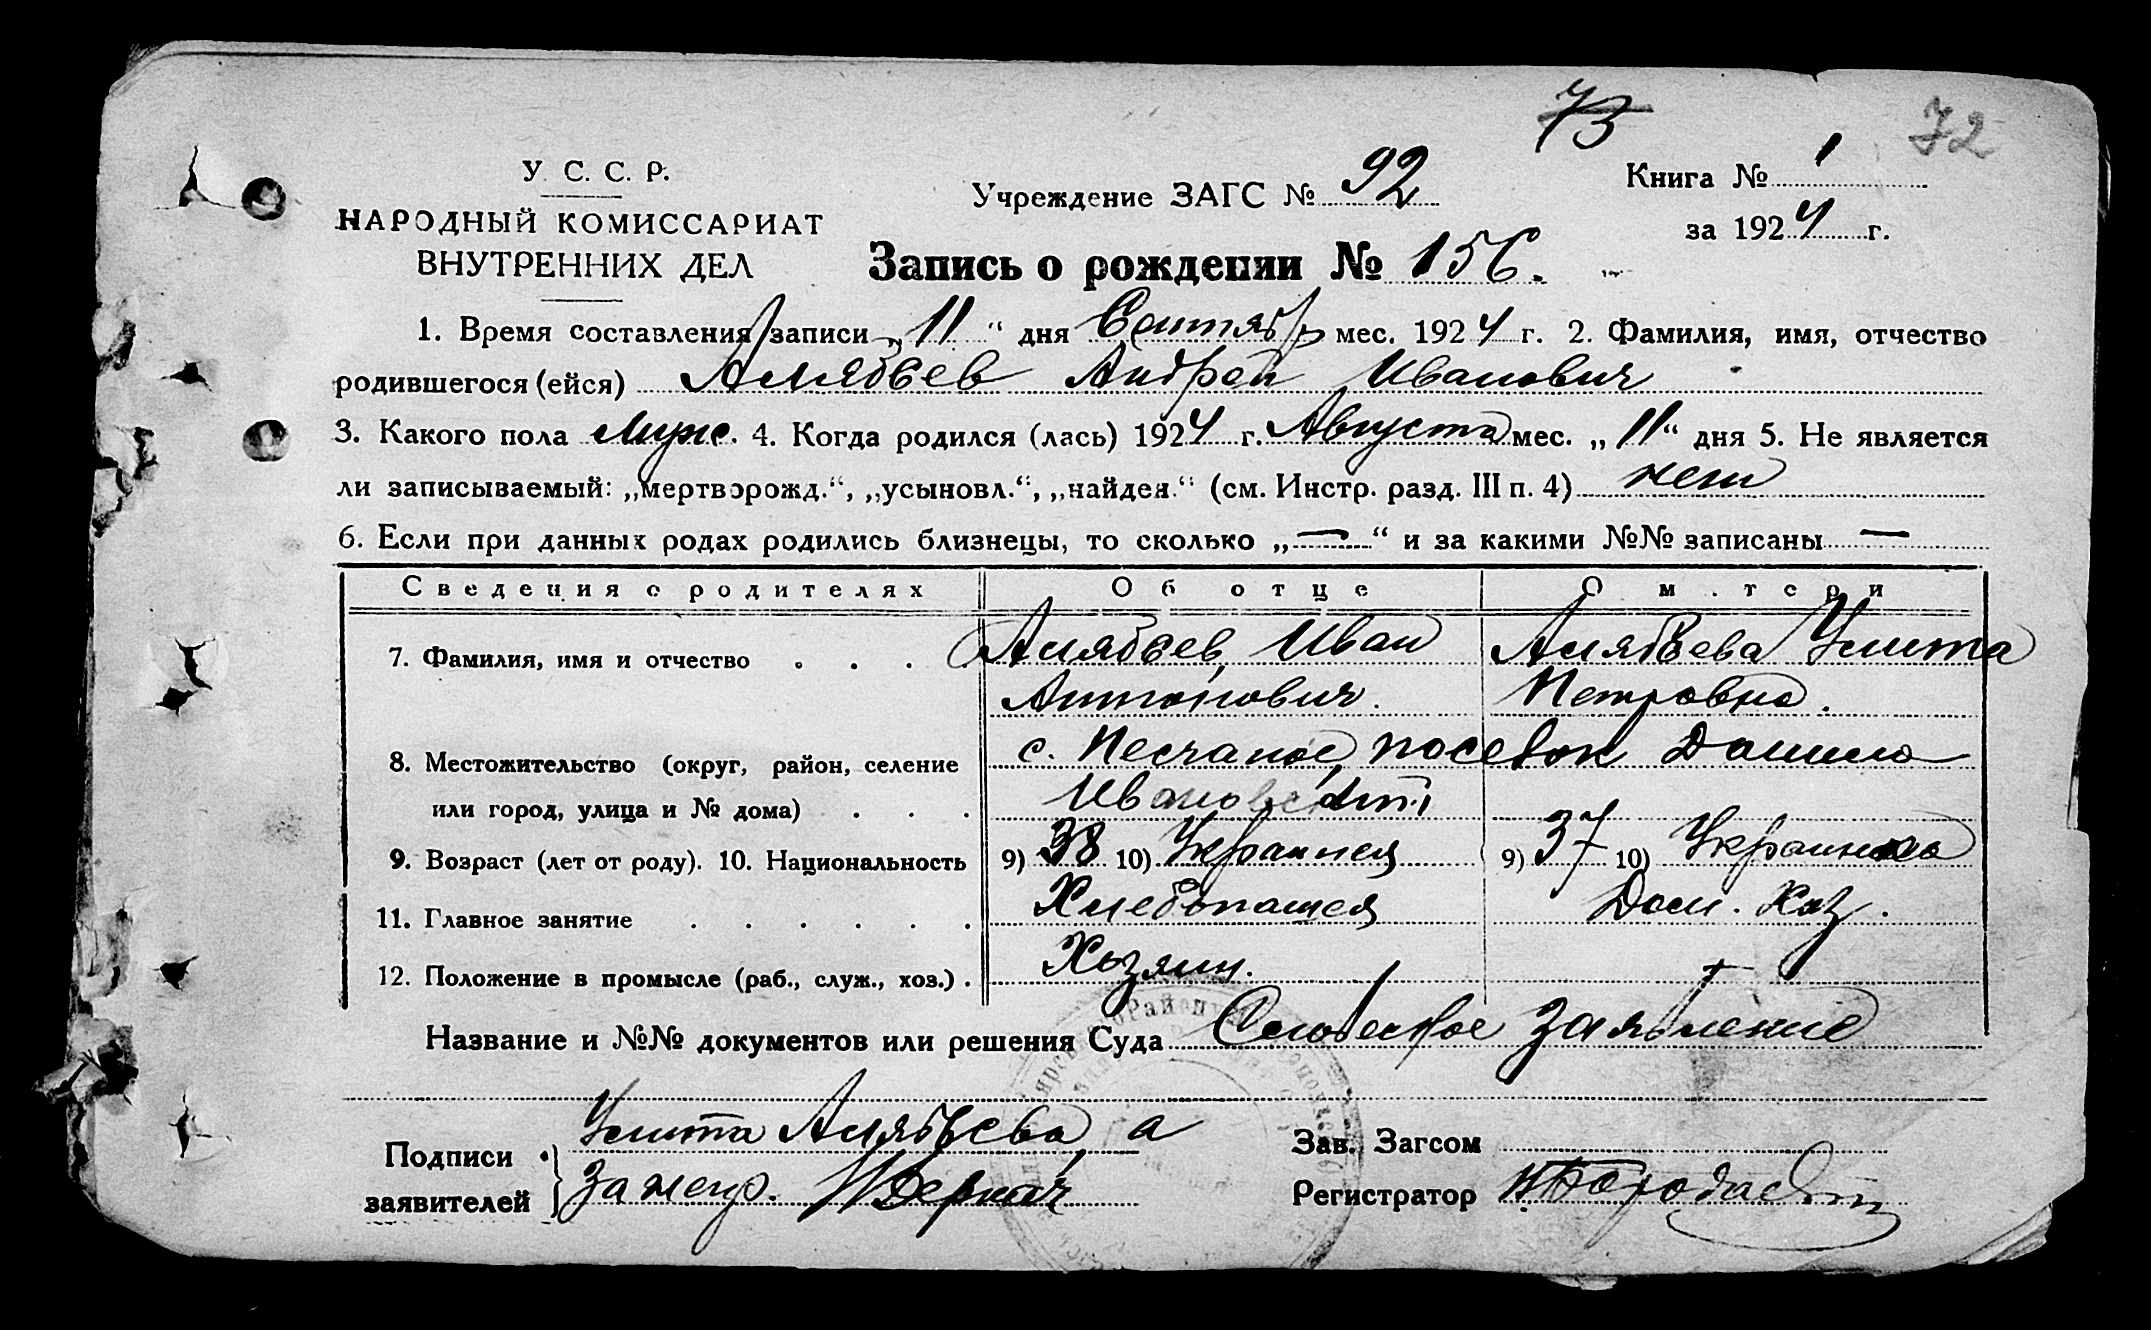 73 72
У. С. С. Р.
Учреждение ЗАГС № 92 Книга № 1
НАРОДНЫЙ КОМИССАРИАТ за 1924 г.
ВНУТРЕННИХ ДЕЛ Запись о рождении № 156.
1. Время составления записи „11“ дня Сентябр мес. 1924 г. 2. Фамилия, имя, отчество
родившегося (ейся) Алябьев Андрей Иванович
3. Какого пола муже. 4. Когда родился (лась) 1924 г. Августа мес. „11“ дня 5. Не является
ли записываемый: „мертворожд.“, „усыновл.“, „найден.“ (см. Инстр. разд. III п. 4) нет
6. Если при данных родах родились близнецы, то сколько „—“ и за какими №№ записаны —
Сведения о родителях Об отце О м.тери
7. Фамилия, имя и отчество . . . Алябьев Иван Алябьева Улита
Антонович. Петровна.
8. Местожительство (округ, район, селение с. Песчаное, поселок Данило
или город, улица и № дома) . . . Ивановский
9. Возраст (лет от роду). 10. Национальность 9) 38 10) Украинец 9) 37 10) Украинка
11. Главное занятие . . . . . . Хлебопашец Дом. Хоз.
12. Положение в промысле (раб., служ., хоз.) . Хозяин.
Название и №№ документов или решения Суда Словесное заявление
Улита Алябьева, а
Подписи Зав. Загсом
заявителей за негр. Деркач Регистратор